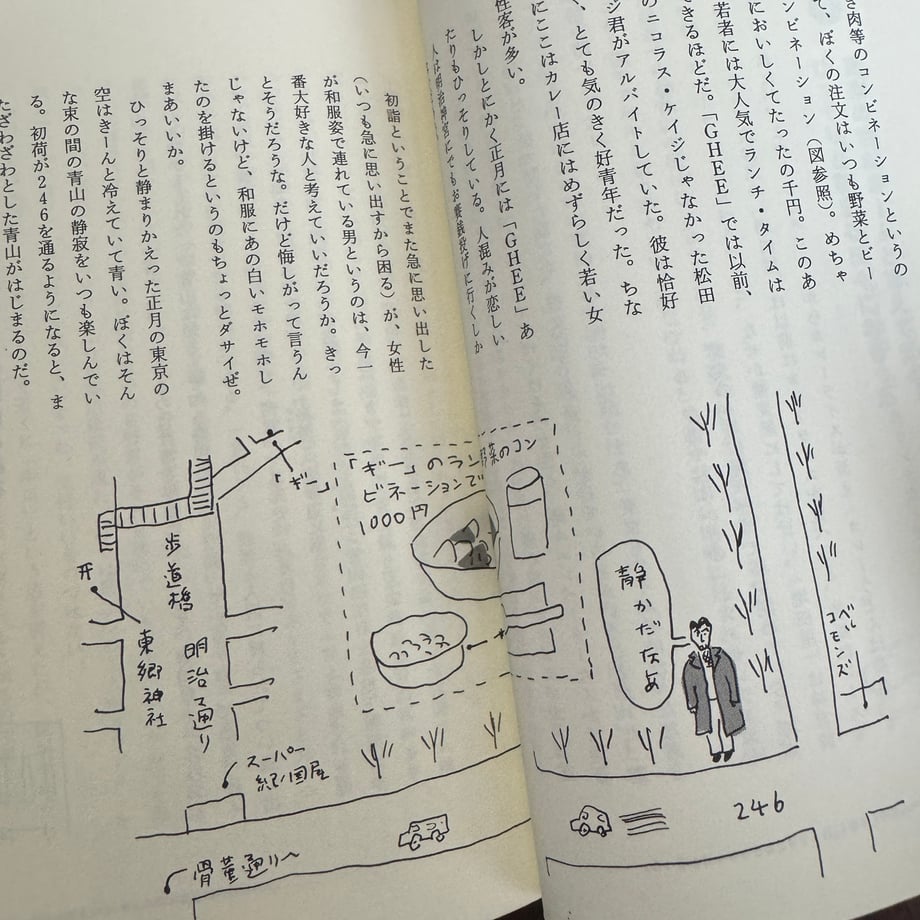 き肉等のコンビネーションというの
て、ぼくの注文はいつも野菜とビー
ンビネーション（図参照）。めちゃ
においしくてたったの千円。このあ
若者には大人気でランチ・タイムは
きるほどだ。「GHEE」では以前、
のニコラス・ケイジじゃなかった松田
ジ君がアルバイトしていた。彼は恰好
、とても気のきく好青年だった。ちな
にここはカレー店にはめずらしく若い女
性客が多い。
しかしとにかく正月には「GHEE」あ
たりもひっそりしている。人混みが恋しい
人は明治神宮にでもお賽銭投げに行くしか
初詣ということでまた急に思い出した
（いつも急に思い出すから困る）が、女性
が和服姿で連れている男というのは、今一
番大好きな人と考えていいだろうか。きっ
とそうだろうな。だけど悔しがって言うん
じゃないけど、和服にあの白いモホモホし
たのを掛けるというのもちょっとダサイぜ。
まあいいか。
ひっそりと静まりかえった正月の東京の
空はきーんと冷えていて青い。ぼくはそん
な束の間の青山の静寂をいつも楽しんでい
る。初荷が246を通るようになると、ま
たざわざわとした青山がはじまるのだ。
ベル
コモンズ
静かだなあ
246
「ギー」のラン
野菜のコン
ビネーションで
1000円
「ギー」
歩道橋
東郷神社
明治通り
スーパー
紀ノ国屋
骨董通りへ